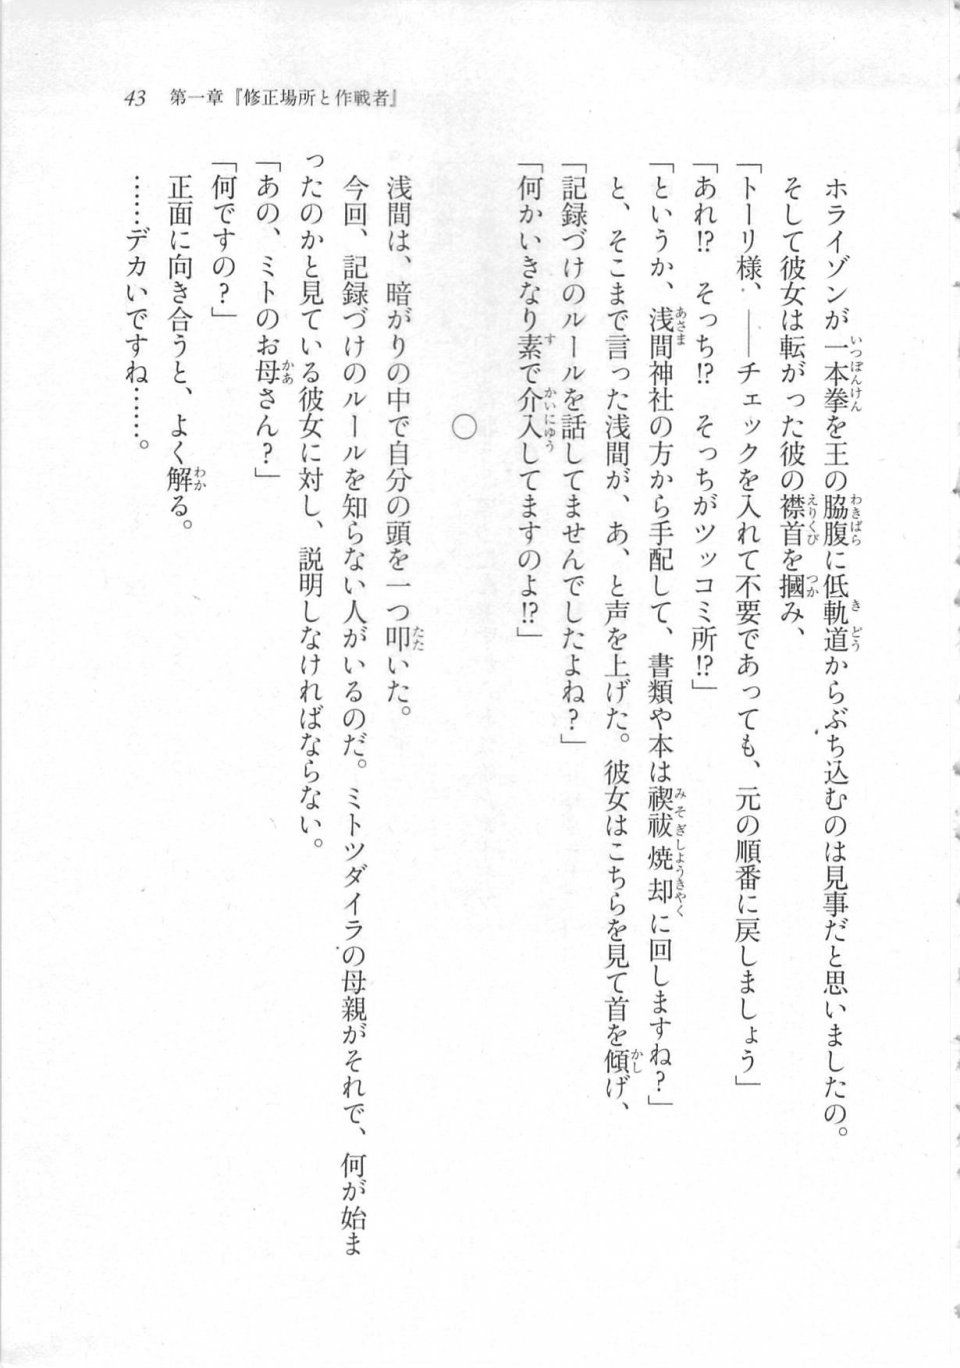 43　第一章『修正場所と作戦者』
ホライゾンが一本拳を王の脇腹に低軌道からぶち込むのは見事だと思いましたの。
そして彼女は転がった彼の襟首を摑み、
「トーリ様、――チェックを入れて不要であっても、元の順番に戻しましょう」
「あれ!?　そっち!?　そっちがツッコミ所!?」
「というか、浅間神社の方から手配して、書類や本は禊祓焼却に回しますね？」
と、そこまで言った浅間が、あ、と声を上げた。彼女はこちらを見て首を傾げ、
「記録づけのルールを話してませんでしたよね？」
「何かいきなり素で介入してますのよ!?」
○
浅間は、暗がりの中で自分の頭を一つ叩いた。
今回、記録づけのルールを知らない人がいるのだ。ミトツダイラの母親がそれで、何が始ま
ったのかと見ている彼女に対し、説明しなければならない。
「あの、ミトのお母さん？」
「何ですの？」
正面に向き合うと、よく解る。
……デカいですね……。